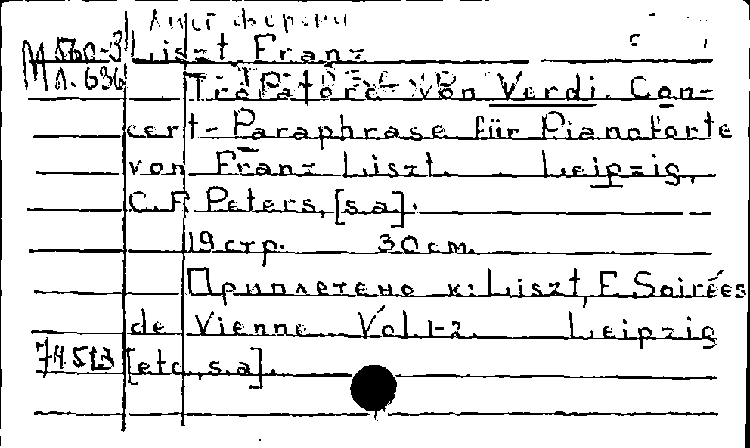 Лист Ференц
М 560-3 Liszt Franz
Л. 636
Trovatore von Verdi. Con-
cert-Paraphrase für Pianoforte
von Franz Liszt. Leipzig,
C.F. Peters, [s.a].
19 стр. 30 см.
Приплетено к: Liszt, F. Soirées
de Vienne. Vol. 1-2. Leipzig
[etc., s.a].